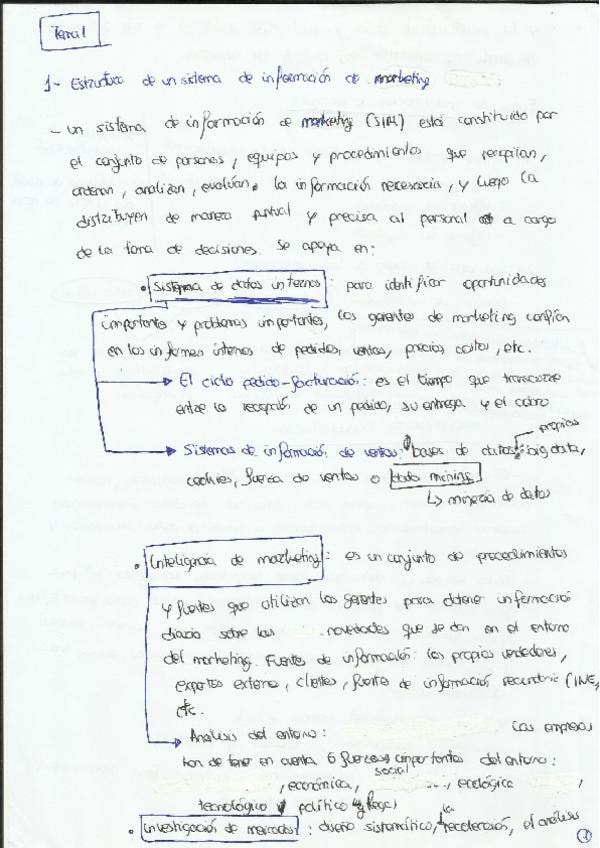 Tema 1
1- Estructura de un sistema de información de marketing
- Un sistema de información de marketing (SIM) está constituido por
el conjunto de personas, equipos y procedimientos que recopilan,
ordenan, analizan, evalúan la información necesaria, y luego la
distribuyen de manera puntual y precisa al personal a cargo
de la toma de decisiones. Se apoya en:
• Sistema de datos internos: para identificar oportunidades
importantes y problemas importantes, los gerentes de marketing confían
en los informes internos de pedidos, ventas, precios, costos, etc.
→ El ciclo pedido-facturación: es el tiempo que transcurre
entre la recepción de un pedido, su entrega y el cobro
propias
→ Sistemas de información de ventas: bases de datos, big data,
cookies, fuerza de ventas o data mining
↳ minería de datos
• Inteligencia de marketing: es un conjunto de procedimientos
y fuentes que utilizan los gerentes para obtener información
diaria sobre las novedades que se dan en el entorno
del marketing. Fuentes de información: los propios vendedores,
expertos externos, clientes, fuente de información secundaria (INE,
etc.
→ Análisis del entorno: Las empresas
han de tener en cuenta 6 fuerzas importantes del entorno:
social
, económica, , ecológica ,
tecnológico y político y legal
• Investigación de mercados: diseño sistemático, la recolección, el análisis
1